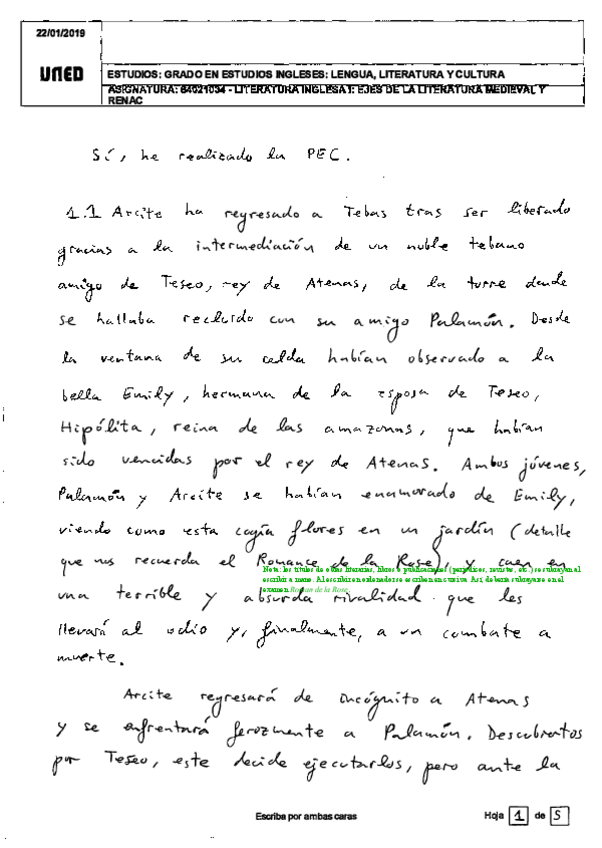 22/01/2019
UNED
ESTUDIOS: GRADO EN ESTUDIOS INGLESES: LENGUA, LITERATURA Y CULTURA
ASIGNATURA: 64021034 - LITERATURA INGLESA I: EJES DE LA LITERATURA MEDIEVAL Y
RENAC
Sí, he realizado la PEC.
1.1 Arcite ha regresado a Tebas tras ser liberado
gracias a la intermediación de un noble tebano
amigo de Teseo, rey de Atenas, de la torre donde
se hallaba recluido con su amigo Palamón. Desde
la ventana de su celda habían observado a la
bella Emily, hermana de la esposa de Teseo,
Hipólita, reina de las amazonas, que habían
sido vencidas por el rey de Atenas. Ambos jóvenes,
Palamón y Arcite se habían enamorado de Emily,
viendo como esta cogía flores en un jardín (detalle
que nos recuerda el Romance de la Rose), y caen en
Nota: los títulos de obras literarias, libros o publicaciones (periódicos, revistas, etc.) se subrayan al
escribir a mano. Al escribir en ordenador se escriben en cursiva. Así, debería subrayarse en el
examen Roman de la Rose
una terrible y absurda rivalidad que les
llevará al odio y, finalmente, a un combate a
muerte.
Arcite regresará de incógnito a Atenas
y se enfrentará ferozmente a Palamón. Descubiertos
por Teseo, este decide ejecutarlos, pero ante la
Escriba por ambas caras
Hoja 1 de 5